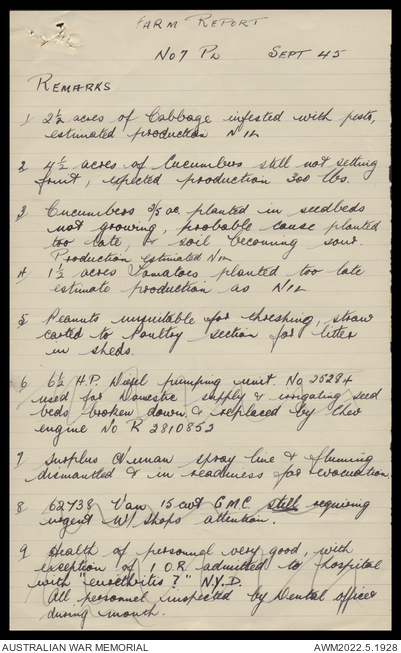 FARM REPORT
No 7 PL SEPT 45
REMARKS
1 2½ acres of Cabbage infested with pests,
estimated production NIL
2 4½ acres of Cucumbers still not setting
fruit, expected production 300 lbs.
3 Cucumbers 3/5 ac. planted in seedbeds
not growing, probable cause planted
too late, or soil becoming sour.
Production estimated NIL
4 1½ acres Tomatoes planted too late
estimate production as NIL
5 Peanuts unsuitable for threshing, straw
carted to Poultry section for litter
in sheds.
6 6½ H.P. Diesel pumping unit. No 25284
used for Domestic supply & irrigating seed
beds broken down & replaced by
engine No R 2810852
7 Surplus spray line & fluming
dismantled & in readiness for evacuation
8 62738 Van 15 cwt G.M.C still requiring
urgent W/Shops attention.
9 Health of personnel very good, with
exception of 1 O.R admitted to hospital
with "eurethritis ?" N.Y.D.
All personnel inspected by Dental officer
during month.
AUSTRALIAN WAR MEMORIAL
AWM2022.5.1928